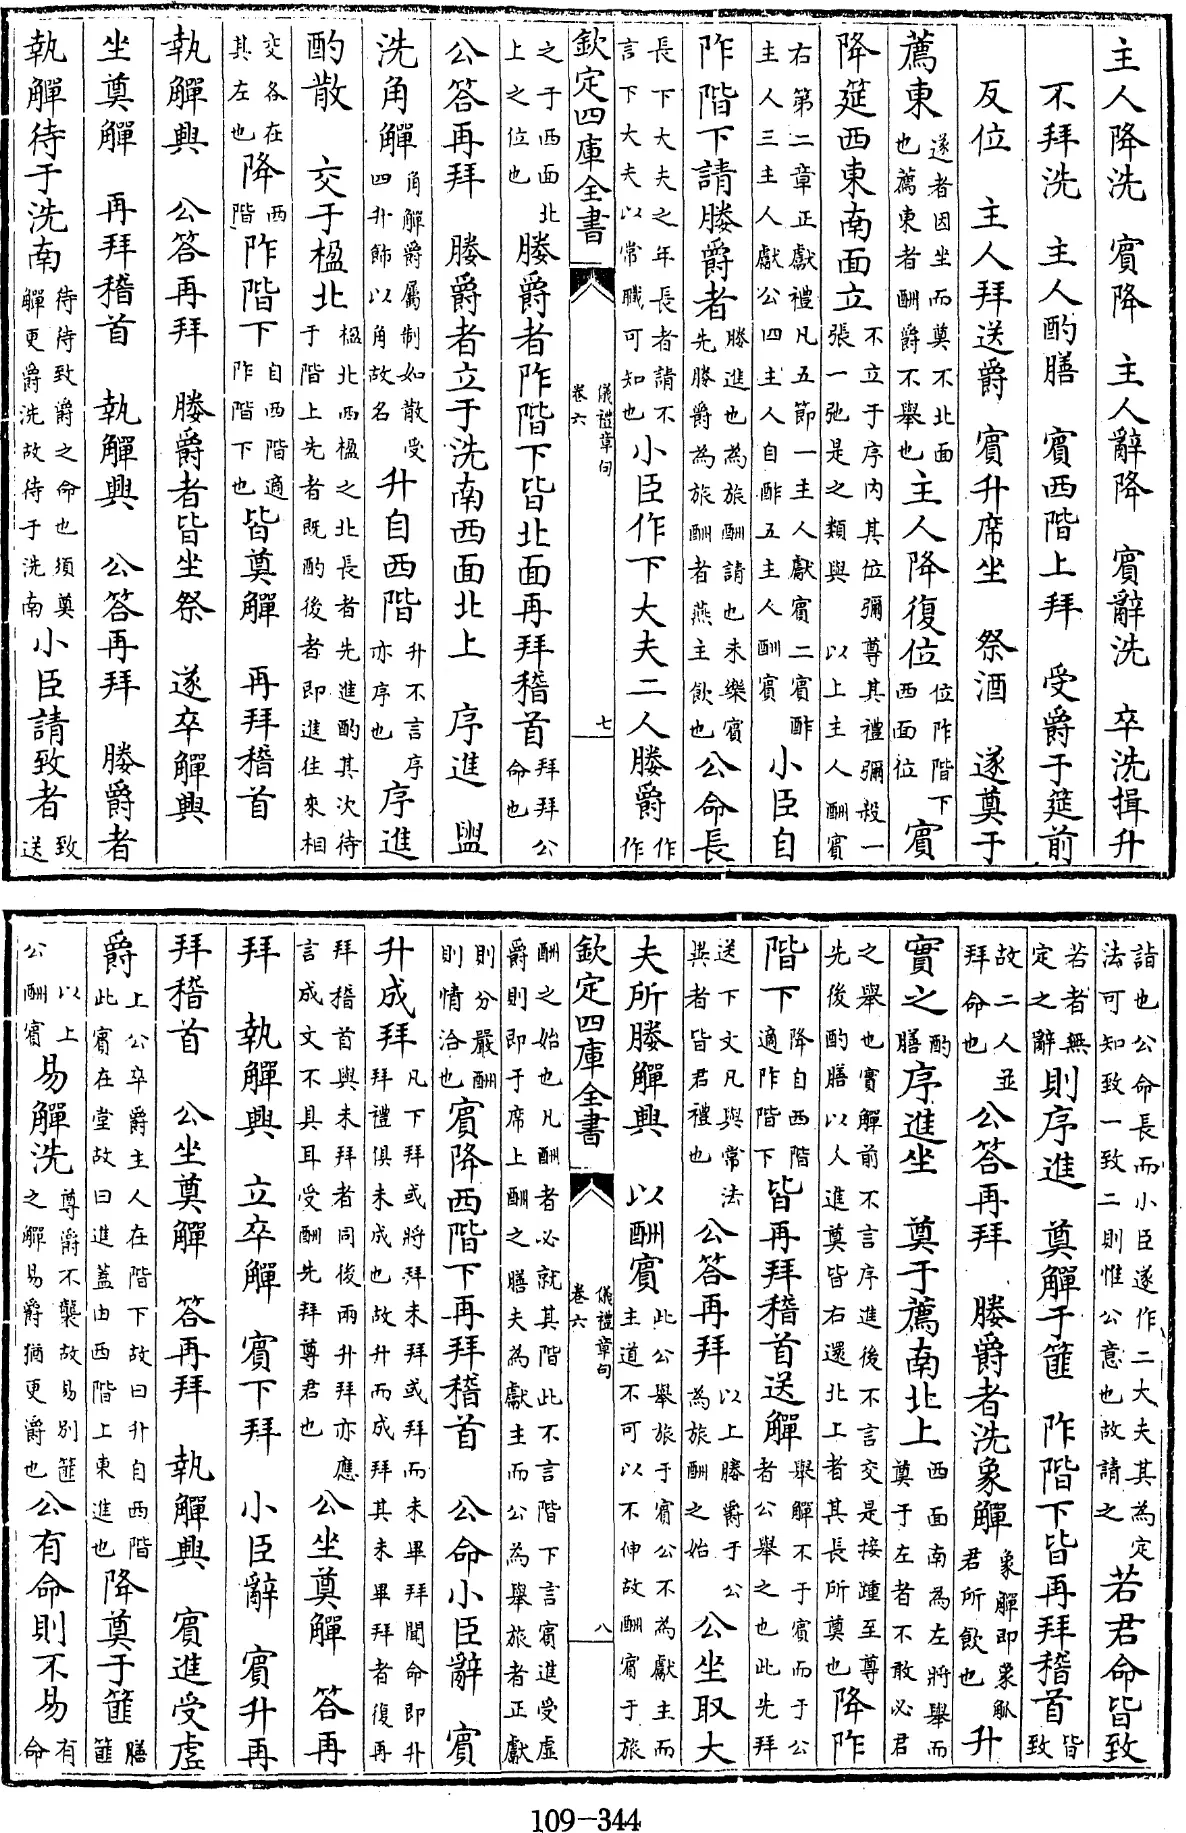 主人降洗　賓降　主人辭降　賓辭洗　卒洗揖升
不拜洗　主人酌膳　賓西階上拜　受爵于筵前
反位　主人拜送爵　賓升席坐　祭酒　遂奠于
薦東遂者因坐而奠不北面也薦東者酬爵不舉也主人降復位位阼階下西面位賓
降筵西東南面立不立于序內其位彌尊其禮彌殺一張一弛是之類與　以上主人酬賓
右第二章正獻禮凡五節一主人獻賓二賓酢主人三主人獻公四主人自酢五主人酬賓　小臣自
阼階下請媵爵者媵進也為旅酬請也未樂賓先媵爵為旅酬者燕主飲也公命長
長下大夫之年長者請不言下大夫以常職可知也小臣作下大夫二人媵爵作作
欽定四庫全書　儀禮章句卷六　七
之于西面北上之位也媵爵者阼階下皆北面再拜稽首拜拜公命也
公答再拜　媵爵者立于洗南西面北上　序進　盥
洗角觶角觶爵屬制如散受四升飾以角故名升自西階升不言序亦序也序進
酌散　交于楹北楹北西楹之北長者先進酌其次待于階上先者既酌後者即進往來相
交各在其左也降西階阼階下自西階適阼階下也皆奠觶　再拜稽首
執觶興　公答再拜　媵爵者皆坐祭　遂卒觶興
坐奠觶　再拜稽首　執觶興　公答再拜　媵爵者
執觶待于洗南待待致爵之命也須奠觶更爵洗故待于洗南小臣請致者致送
詣也公命長而小臣遂作二大夫其為定法可知致一致二則惟公意也故請之若君命皆致
若者無定之辭則序進　奠觶于篚　阼階下皆再拜稽首皆致
故二人並拜命也公答再拜　媵爵者洗象觶象觶即象觚君所飲也升
實之酌膳序進坐　奠于薦南北上西面南為左將舉而奠于左者不敢必君
之舉也實觶前不言序進後不言交是接踵至尊先後酌膳以人進奠皆右還北上者其長所奠也降阼
階下降自西階適阼階下皆再拜稽首送觶舉觶不于賓而于公者公舉之也此先拜
送下文凡與常法異者皆君禮也公答再拜以上媵爵于公為旅酬之始　公坐取大
夫所媵觶興　以酬賓此公舉旅于賓公不為獻主而主道不可以不伸故酬賓于旅
欽定四庫全書　儀禮章句卷六　八
酬之始也凡酬者必就其階此不言階下言賓進受虛爵則即于席上酬之膳夫為獻主而公為舉旅者正獻
則分嚴酬則情洽也賓降西階下再拜稽首　公命小臣辭　賓
升成拜凡下拜或將拜未拜或拜而未畢拜聞命即升拜禮俱未成也故升而成拜其未畢拜者復再
拜稽首與未拜者同後兩升拜亦應言成文不具耳受酬先拜尊君也　公坐奠觶　答再
拜　執觶興　立卒觶　賓下拜　小臣辭　賓升再
拜稽首　公坐奠觶　答再拜　執觶興　賓進受虛
爵上公卒爵主人在階下故曰升自西階此賓在堂故曰進蓋由西階上東進也降奠于篚膳篚
以上公酬賓易觶洗尊爵不襲故易別篚之觶易爵猶更爵也公有命則不易有命
109-344